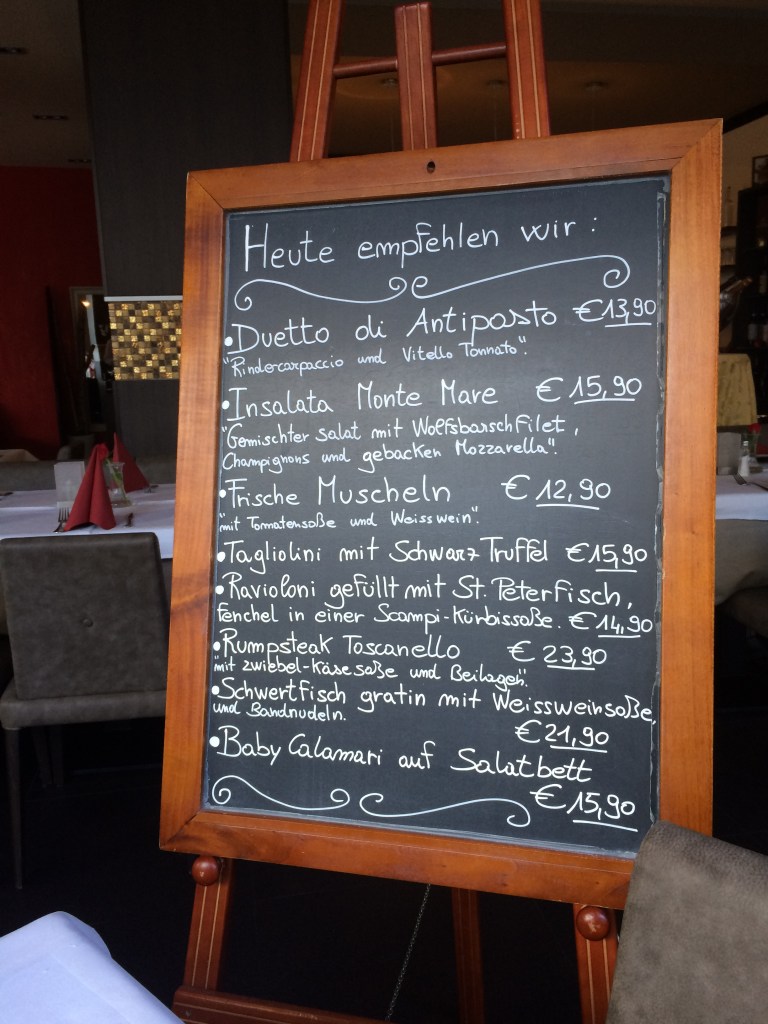 Heute empfehlen wir:
• Duetto di Antipasto €13,90
"Rindercarpaccio und Vitello Tonnato".
• Insalata Monte Mare € 15,90
"Gemischter Salat mit Wolfsbarschfilet,
Champignons und gebacken Mozzarella".
• Frische Muscheln € 12,90
"mit Tomatensoße und Weisswein".
• Tagliolini mit Schwarz Truffel €15,90
• Ravioloni gefüllt mit St. Peterfisch,
Fenchel in einer Scampi-Kürbissoße. €14,90
• Rumpsteak Toscanello € 23,90
"mit zwiebel-Käsesoße und Beilagen".
• Schwertfisch gratin mit Weissweinsoße,
und Bandnudeln.
€21,90
• Baby Calamari auf Salatbett
€15,90